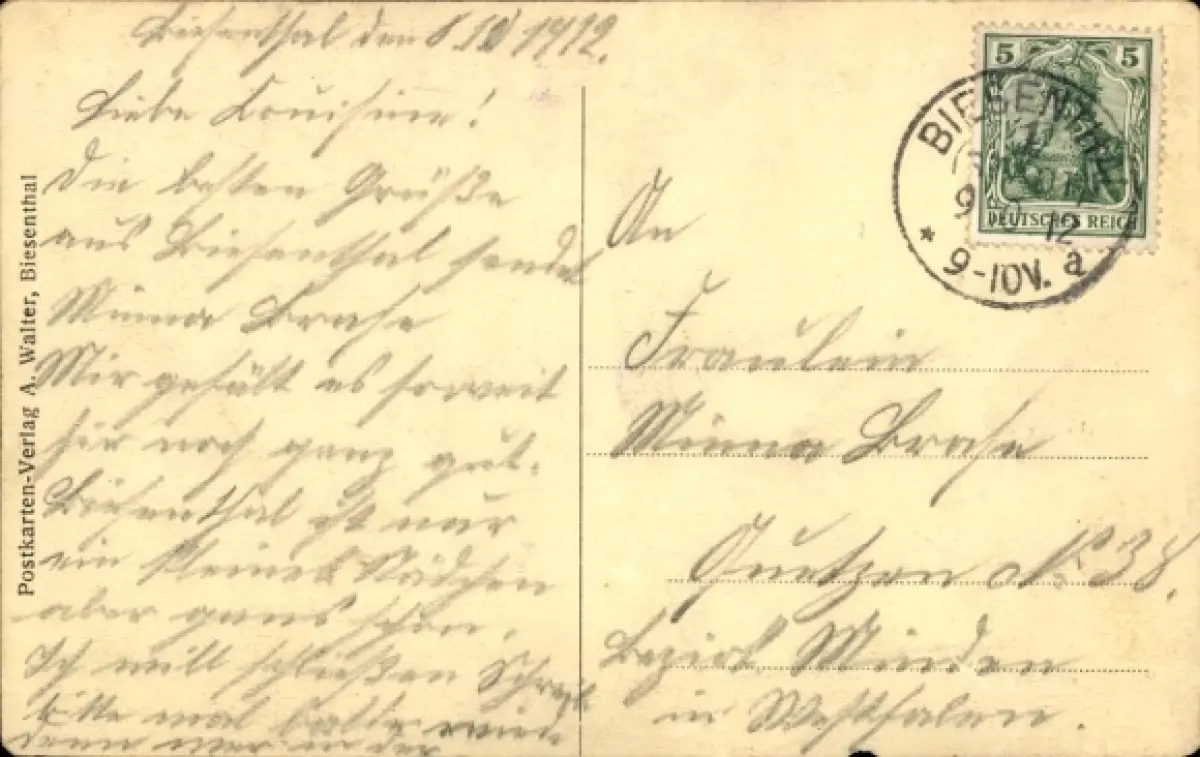 Biesenthal den 8.10 1912.
Liebe Louisine!
Die besten Grüße
aus Biesenthal sendet
Minna Brase
Mir gefält es soweit
hir noch ganz gut.
Biesenthal ist nur
ein kleines Städchen
aber gans schön.
Ich will schließen Schreib
bitte mal balde wied
denn wer in der
Postkarten-Verlag A. Walter, Biesenthal
5 5
DEUTSCHES REICH
BIESENTHAL
1
9 12
* 9-10V. a
An
Fräulein
Minna Brase
Quetzen No 38.
Bezirk Minden
in Westfalen.